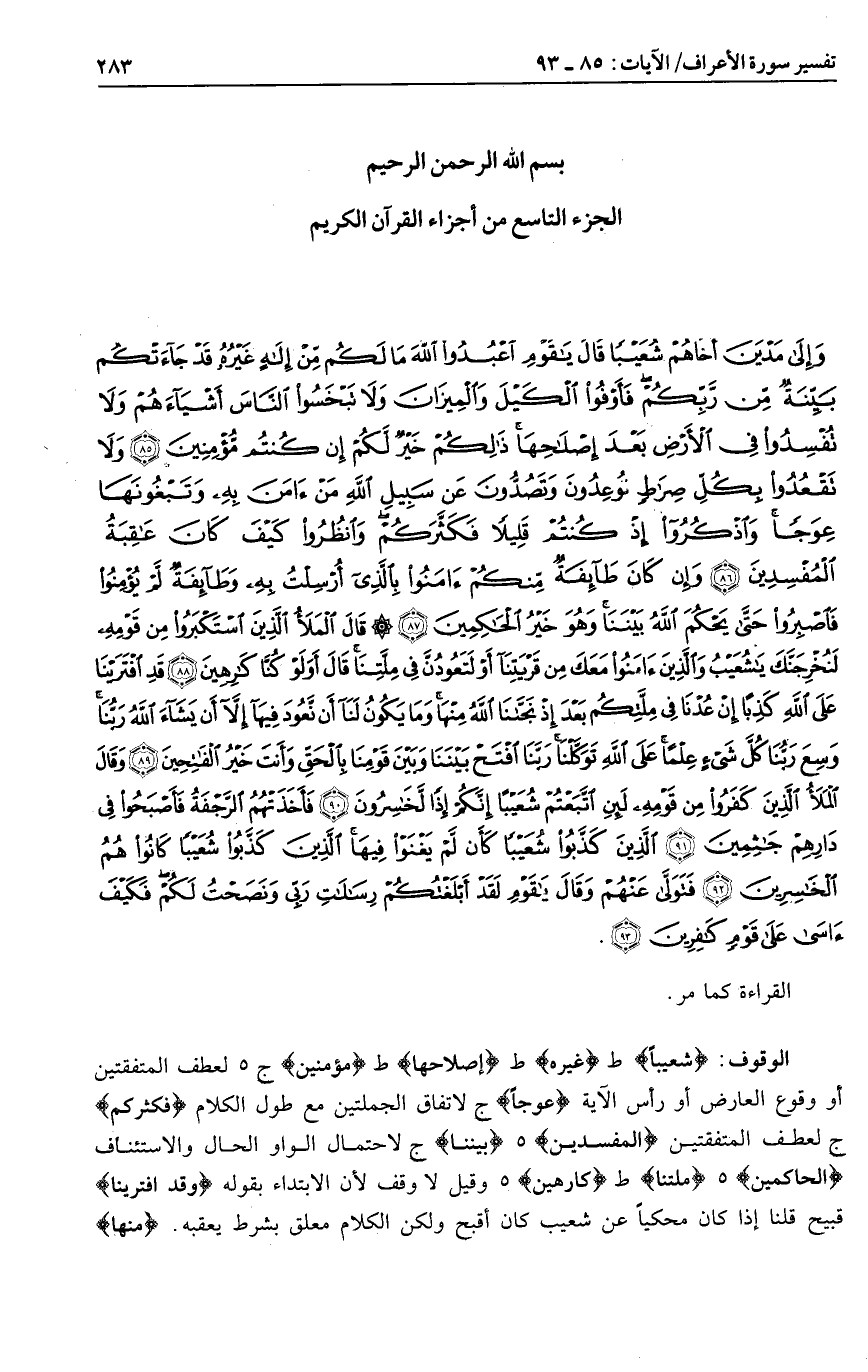 تفسير سورة الأعراف/ الآيات: ٨٥ ـ ٩٣ ٢٨٣
بسم الله الرحمن الرحيم
الجزء التاسع من أجزاء القرآن الكريم
وَإِلَىٰ مَدْيَنَ أَخَاهُمْ شُعَيْبًا قَالَ يَٰقَوْمِ ٱعْبُدُوا۟ ٱللَّهَ مَا لَكُم مِّنْ إِلَٰهٍ غَيْرُهُۥ قَدْ جَآءَتْكُم
بَيِّنَةٌ مِّن رَّبِّكُمْ ۖ فَأَوْفُوا۟ ٱلْكَيْلَ وَٱلْمِيزَانَ وَلَا تَبْخَسُوا۟ ٱلنَّاسَ أَشْيَآءَهُمْ وَلَا
تُفْسِدُوا۟ فِى ٱلْأَرْضِ بَعْدَ إِصْلَٰحِهَا ۚ ذَٰلِكُمْ خَيْرٌ لَّكُمْ إِن كُنتُم مُّؤْمِنِينَ ٨٥ وَلَا
تَقْعُدُوا۟ بِكُلِّ صِرَٰطٍ تُوعِدُونَ وَتَصُدُّونَ عَن سَبِيلِ ٱللَّهِ مَنْ ءَامَنَ بِهِۦ وَتَبْغُونَهَا
عِوَجًا ۚ وَٱذْكُرُوٓا۟ إِذْ كُنتُمْ قَلِيلًا فَكَثَّرَكُمْ ۖ وَٱنظُرُوا۟ كَيْفَ كَانَ عَٰقِبَةُ
ٱلْمُفْسِدِينَ ٨٦ وَإِن كَانَ طَآئِفَةٌ مِّنكُمْ ءَامَنُوا۟ بِٱلَّذِىٓ أُرْسِلْتُ بِهِۦ وَطَآئِفَةٌ لَّمْ يُؤْمِنُوا۟
فَٱصْبِرُوا۟ حَتَّىٰ يَحْكُمَ ٱللَّهُ بَيْنَنَا ۚ وَهُوَ خَيْرُ ٱلْحَٰكِمِينَ ٨٧ ۞ قَالَ ٱلْمَلَأُ ٱلَّذِينَ ٱسْتَكْبَرُوا۟ مِن قَوْمِهِۦ
لَنُخْرِجَنَّكَ يَٰشُعَيْبُ وَٱلَّذِينَ ءَامَنُوا۟ مَعَكَ مِن قَرْيَتِنَآ أَوْ لَتَعُودُنَّ فِى مِلَّتِنَا ۚ قَالَ أَوَلَوْ كُنَّا كَٰرِهِينَ ٨٨ قَدِ ٱفْتَرَيْنَا
عَلَى ٱللَّهِ كَذِبًا إِنْ عُدْنَا فِى مِلَّتِكُم بَعْدَ إِذْ نَجَّىٰنَا ٱللَّهُ مِنْهَا ۚ وَمَا يَكُونُ لَنَآ أَن نَّعُودَ فِيهَآ إِلَّآ أَن يَشَآءَ ٱللَّهُ رَبُّنَا ۚ
وَسِعَ رَبُّنَا كُلَّ شَىْءٍ عِلْمًا ۚ عَلَى ٱللَّهِ تَوَكَّلْنَا ۚ رَبَّنَا ٱفْتَحْ بَيْنَنَا وَبَيْنَ قَوْمِنَا بِٱلْحَقِّ وَأَنتَ خَيْرُ ٱلْفَٰتِحِينَ ٨٩ وَقَالَ
ٱلْمَلَأُ ٱلَّذِينَ كَفَرُوا۟ مِن قَوْمِهِۦ لَئِنِ ٱتَّبَعْتُمْ شُعَيْبًا إِنَّكُمْ إِذًا لَّخَٰسِرُونَ ٩٠ فَأَخَذَتْهُمُ ٱلرَّجْفَةُ فَأَصْبَحُوا۟ فِى
دَارِهِمْ جَٰثِمِينَ ٩١ ٱلَّذِينَ كَذَّبُوا۟ شُعَيْبًا كَأَن لَّمْ يَغْنَوْا۟ فِيهَا ۚ ٱلَّذِينَ كَذَّبُوا۟ شُعَيْبًا كَانُوا۟ هُمُ
ٱلْخَٰسِرِينَ ٩٢ فَتَوَلَّىٰ عَنْهُمْ وَقَالَ يَٰقَوْمِ لَقَدْ أَبْلَغْتُكُمْ رِسَٰلَٰتِ رَبِّى وَنَصَحْتُ لَكُمْ ۖ فَكَيْفَ
ءَاسَىٰ عَلَىٰ قَوْمٍ كَٰفِرِينَ ٩٣ .
القراءة كما مر.
الوقوف: ﴿شعيباً﴾ ط ﴿غيره﴾ ط ﴿إصلاحها﴾ ط ﴿مؤمنين﴾ ج ٥ لعطف المتفقتين
أو وقوع العارض أو رأس الآية ﴿عوجاً﴾ ج لاتفاق الجملتين مع طول الكلام ﴿فكثركم﴾
ج لعطف المتفقتين ﴿المفسدين﴾ ٥ ﴿بيننا﴾ ج لاحتمال الواو الحال والاستئناف
﴿الحاكمين﴾ ٥ ﴿ملتنا﴾ ط ﴿كارهين﴾ ٥ وقيل لا وقف لأن الابتداء بقوله ﴿وقد افترينا﴾
قبيح قلنا إذا كان محكياً عن شعيب كان أقبح ولكن الكلام معلق بشرط يعقبه. ﴿منها﴾